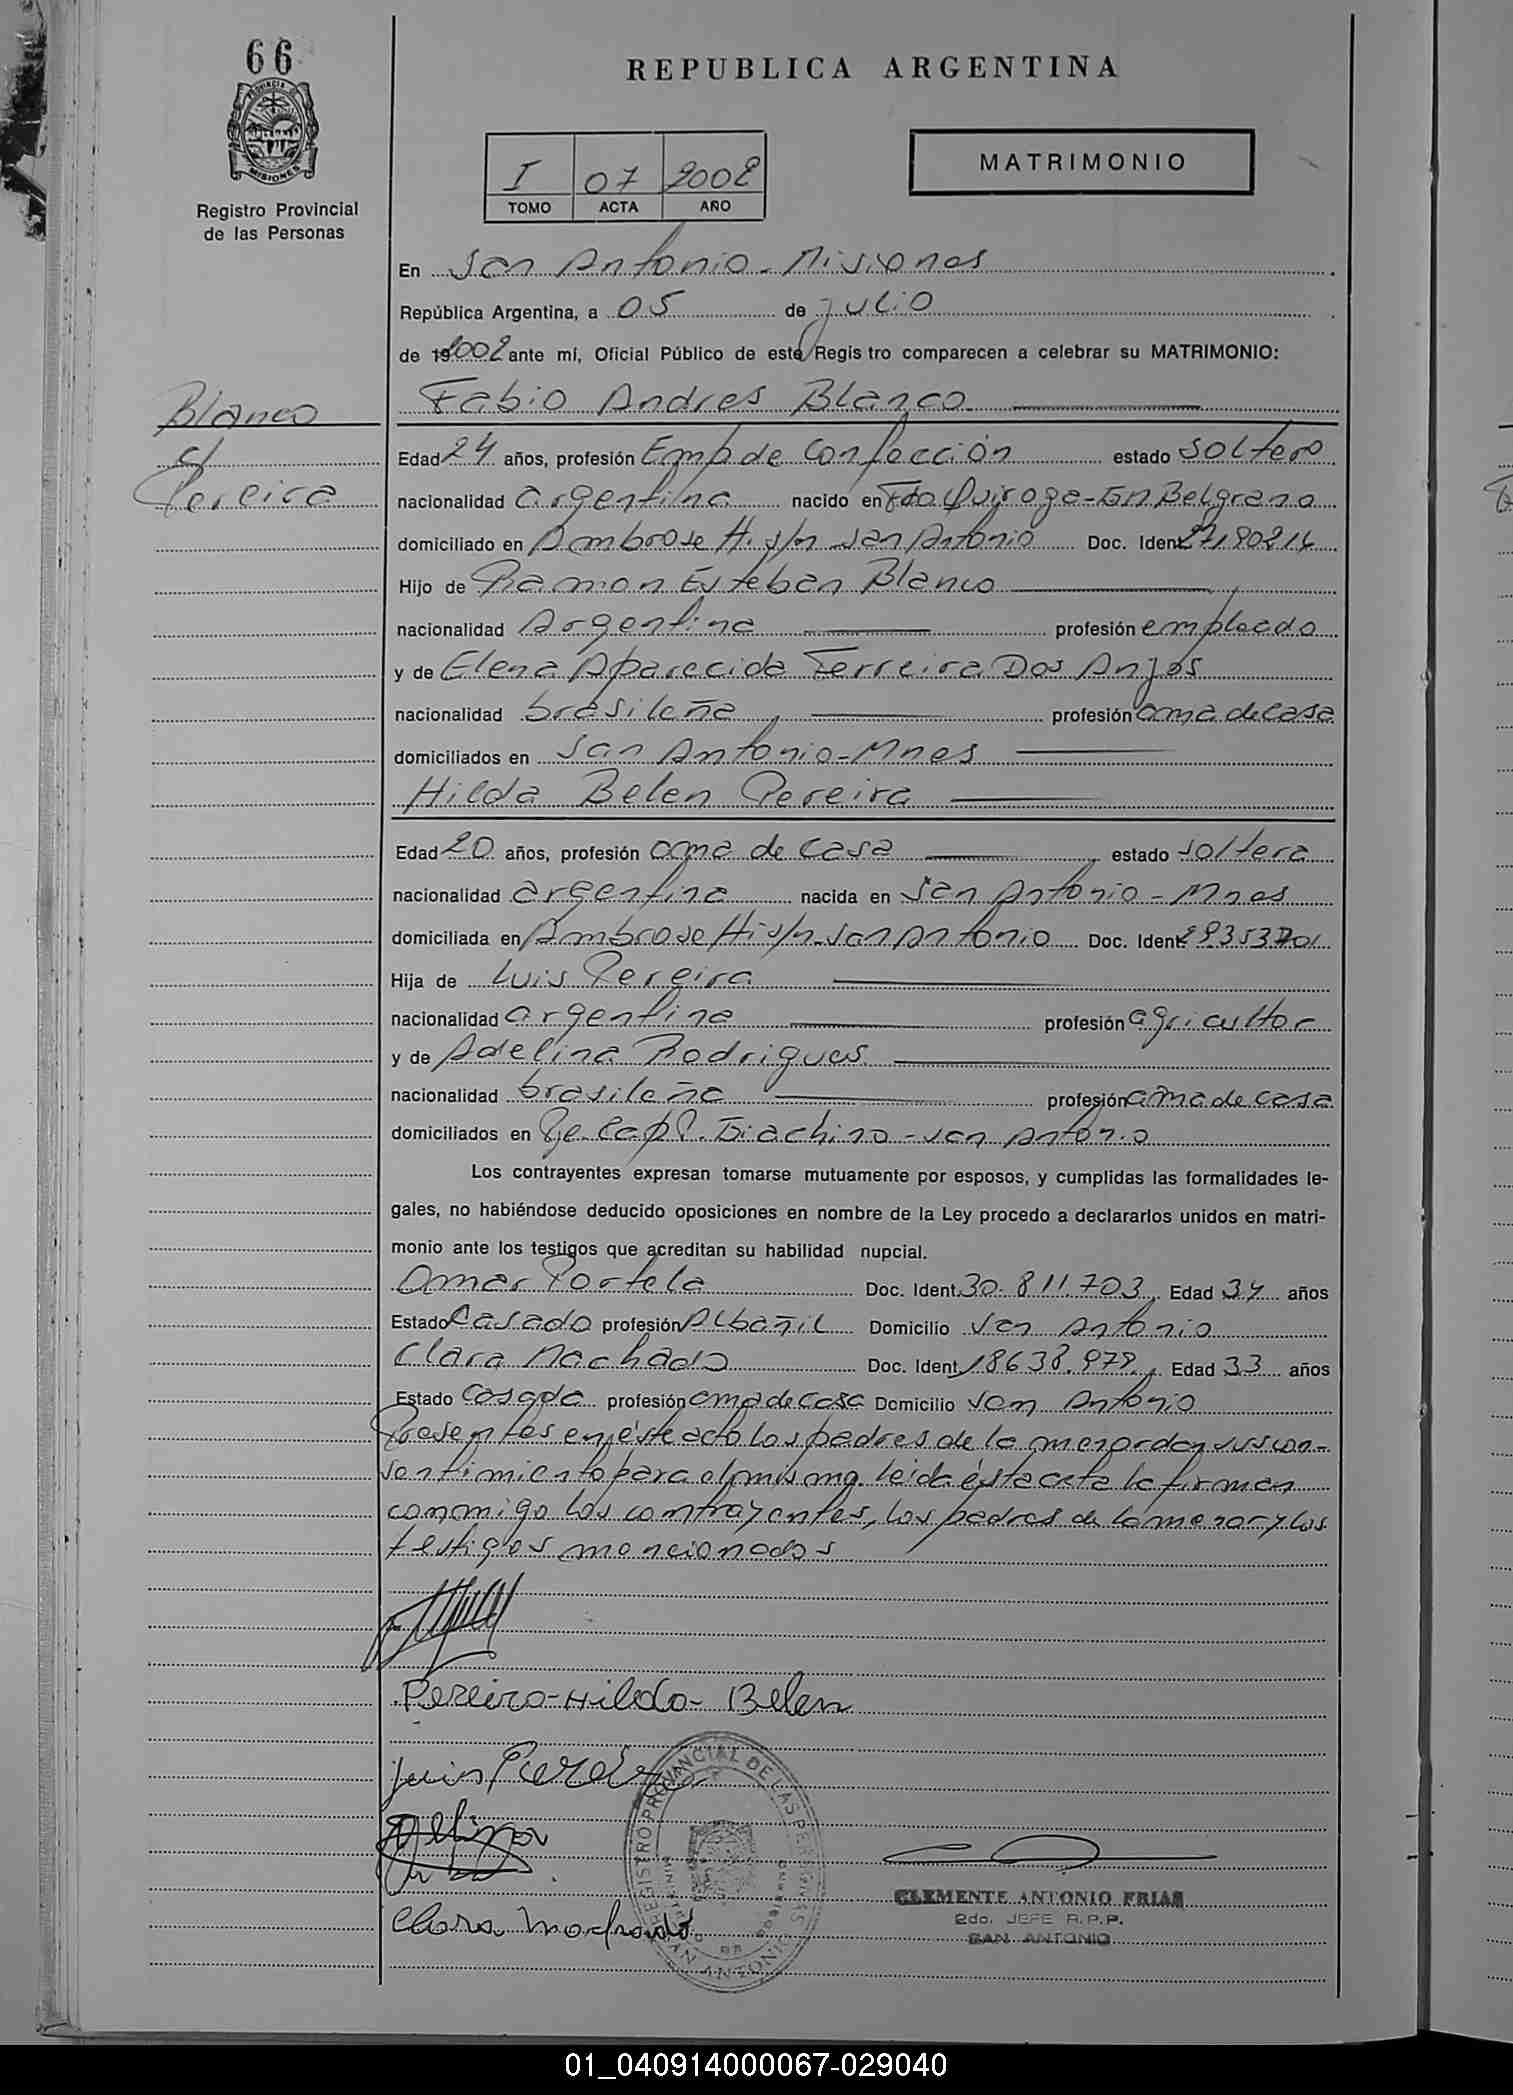 66
PROVINCIA DE
MISIONES
Registro Provincial
de las Personas
REPUBLICA ARGENTINA
I 07 2002
TOMO ACTA AÑO
MATRIMONIO
En San Antonio - Misiones
República Argentina, a 05 de julio
de 2002 ante mí, Oficial Público de este Registro comparecen a celebrar su MATRIMONIO:
Blanco
c/
Pereira
Fabio Andres Blanco
Edad 24 años, profesión Emp de Confección estado soltero
nacionalidad argentina nacido en Fdo Quiroga - Gn Belgrano
domiciliado en Ambrose H. s/n San Antonio Doc. Ident.
Hijo de Ramon Esteban Blanco
nacionalidad Argentina profesión empleado
y de Elena Aparecida Ferreira Dos Anjos
nacionalidad brasileña profesión ama de casa
domiciliados en San Antonio - Mnes
Hilda Belen Pereira
Edad 20 años, profesión ama de casa estado soltera
nacionalidad argentina nacida en San Antonio - Mnes
domiciliada en Ambrose H. s/n San Antonio Doc. Ident. 29353701
Hija de Luis Pereira
nacionalidad argentina profesión agricultor
y de Adelina Rodrigues
nacionalidad brasileña profesión ama de casa
domiciliados en Cap P. Giachino - San Antonio
Los contrayentes expresan tomarse mutuamente por esposos, y cumplidas las formalidades le-
gales, no habiéndose deducido oposiciones en nombre de la Ley procedo a declararlos unidos en matri-
monio ante los testigos que acreditan su habilidad nupcial.
Omar Portela Doc. Ident. 30.811.703 Edad 34 años
Estado Casado profesión Albañil Domicilio San Antonio
Clara Machado Doc. Ident. 18638.979 Edad 33 años
Estado Casada profesión ama de casa Domicilio San Antonio
Presentes en éste acto los padres de la menor dan sus con-
sentimiento para el mismo. leida ésta acta la firman
conmigo los contrayentes, los padres de la menor y los
testigos mencionados
Pereira - Hilda - Belen
Luis Pereira
Adelina
Clara Machado
REGISTRO PROVINCIAL DE LAS PERSONAS
SAN ANTONIO
CLEMENTE ANTONIO FRIAS
2do. JEFE R.P.P.
SAN ANTONIO
01_040914000067-029040